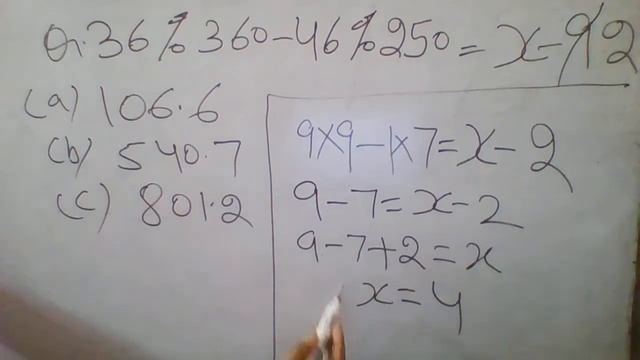 Q. 36% 360 - 46% 250 = x - 92
(a) 106.6
(b) 540.7
(c) 801.2
9×9 - 1×7 = x - 2
9 - 7 = x - 2
9 - 7 + 2 = x
x = 4